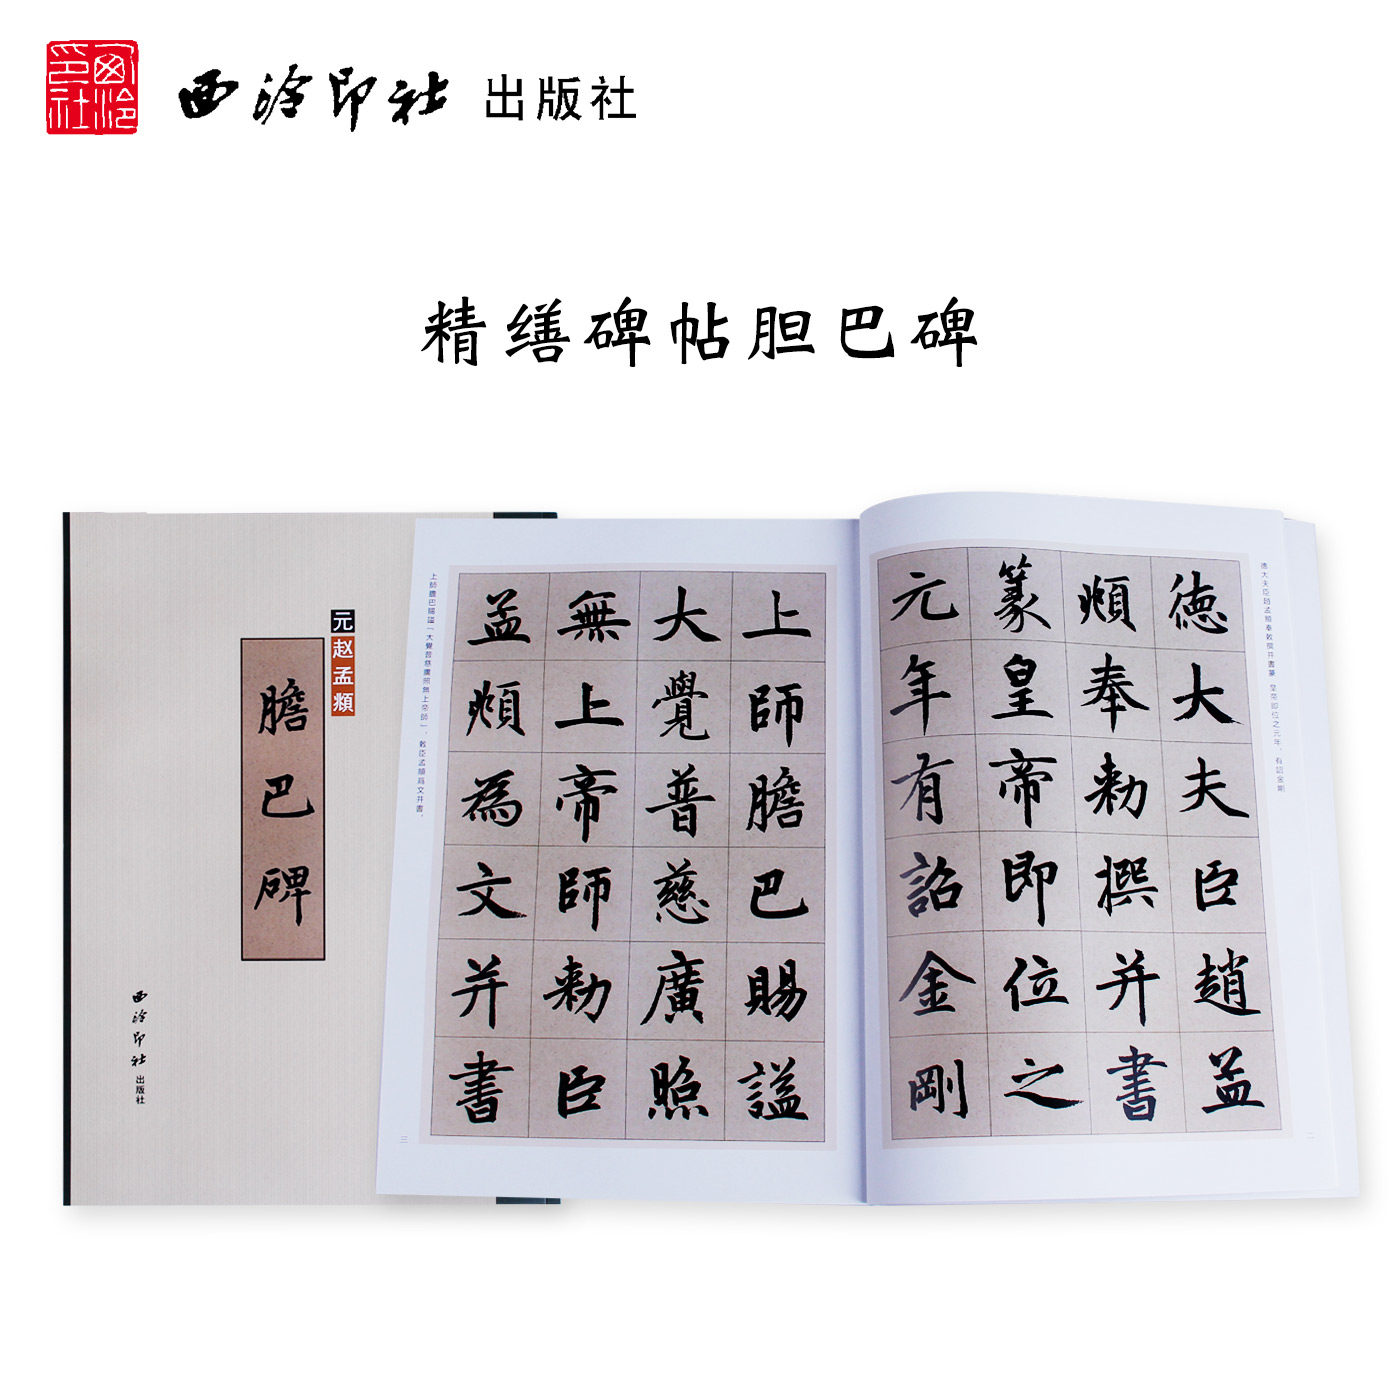 西泠印社
西泠印社 出版社
精缮碑帖胆巴碑
元 赵孟頫
膽巴碑
西泠印社 出版社
德大夫臣趙孟
頫奉敕撰并書
篆皇帝即位之
元年有詔金剛
德大夫臣趙孟頫奉敕撰并書篆 皇帝即位之元年，有詔金剛
二
上師膽巴賜謚
大覺普慈廣照
無上帝師敕臣
孟頫為文并書
上師膽巴賜謚「大覺普慈廣照無上帝師」，敕臣孟頫爲文并書，
三